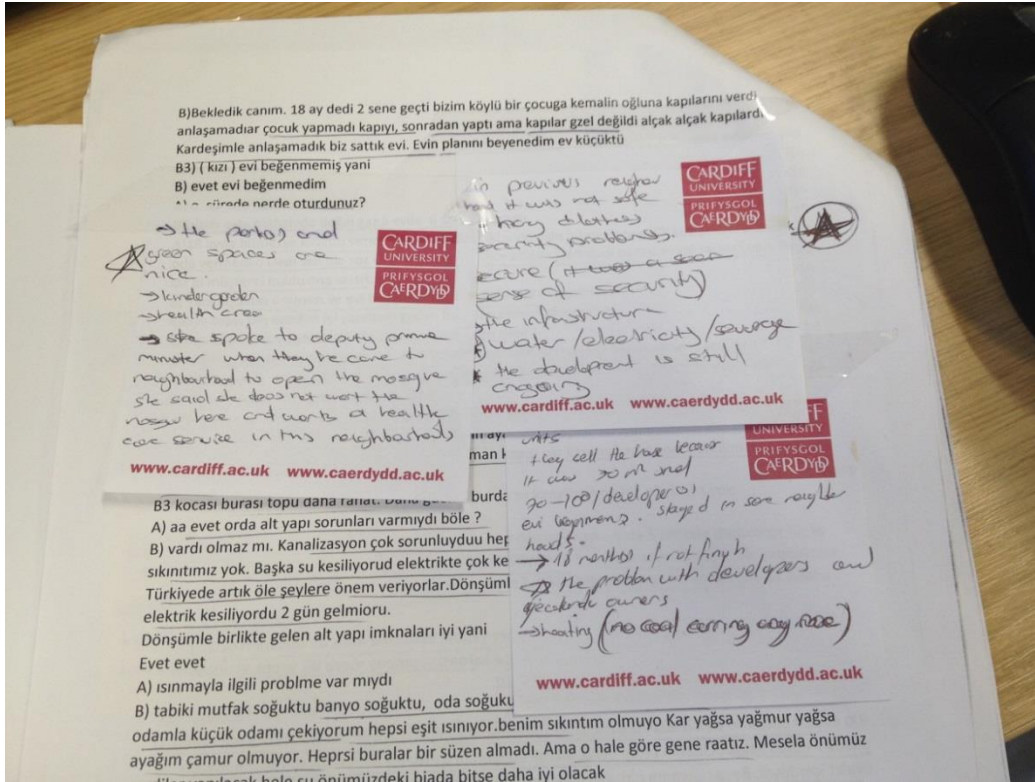 B)Bekledik canım. 18 ay dedi 2 sene geçti bizim köylü bir çocuga kemalin oğluna kapılarını verdi
anlaşamadıar çocuk yapmadı kapıyı, sonradan yaptı ama kapılar gzel değildi alçak alçak kapılardı
Kardeşimle anlaşamadık biz sattık evi. Evin planını beyenedim ev küçüktü
B3) ( kızı ) evi beğenmemiş yani
B) evet evi beğenmedim
sürede nerde oturdunuz?
→ the parks and
green spaces are
nice.
→ kindergarden
→ health
→ she spoke to deputy prime
minister when they came to
neighbourhood to open the mosque
she said she does not want the
here and wants a health
care service in this neighbourhoods
CARDIFF
UNIVERSITY
PRIFYSGOL
CAERDYDD
www.cardiff.ac.uk www.caerdydd.ac.uk
in
it was not safe
security problems.
sense of security)
the infrastructure
water/electricity/sewage
* the development is still
ongoing
CARDIFF
UNIVERSITY
PRIFYSGOL
CAERDYDD
A
www.cardiff.ac.uk www.caerdydd.ac.uk
units
they sell the house because
it was 70 m² and
70-100/developers)
evi stayed in same neighbor
hoods.
→ 18 months if not finish
the problem with developers and
gecekondu owners
→ heating (no coal any more)
UNIVERSITY
PRIFYSGOL
CAERDYDD
www.cardiff.ac.uk www.caerdydd.ac.uk
B3 kocası burası topu daha rahat. burda
A) aa evet orda alt yapı sorunları varmıydı böle ?
B) vardı olmaz mı. Kanalizasyon çok sorunluyduu hep
sıkınıtımız yok. Başka su kesiliyorud elektrikte çok ke
Türkiyede artık öle şeylere önem veriyorlar.Dönşüml
elektrik kesiliyordu 2 gün gelmioru.
Dönşümle birlikte gelen alt yapı imknaları iyi yani
Evet evet
A) ısınmayla ilgili problme var mıydı
B) tabiki mutfak soğuktu banyo soğuktu, oda soğuku
odamla küçük odamı çekiyorum hepsi eşit ısınıyor.benim sıkıntım olmuyo Kar yağsa yağmur yağsa
ayağım çamur olmuyor. Heprsi buralar bir süzen almadı. Ama o hale göre gene raatız. Mesela önümüz
yapılacak hole su önümüzdeki biada bitse daha iyi olacak